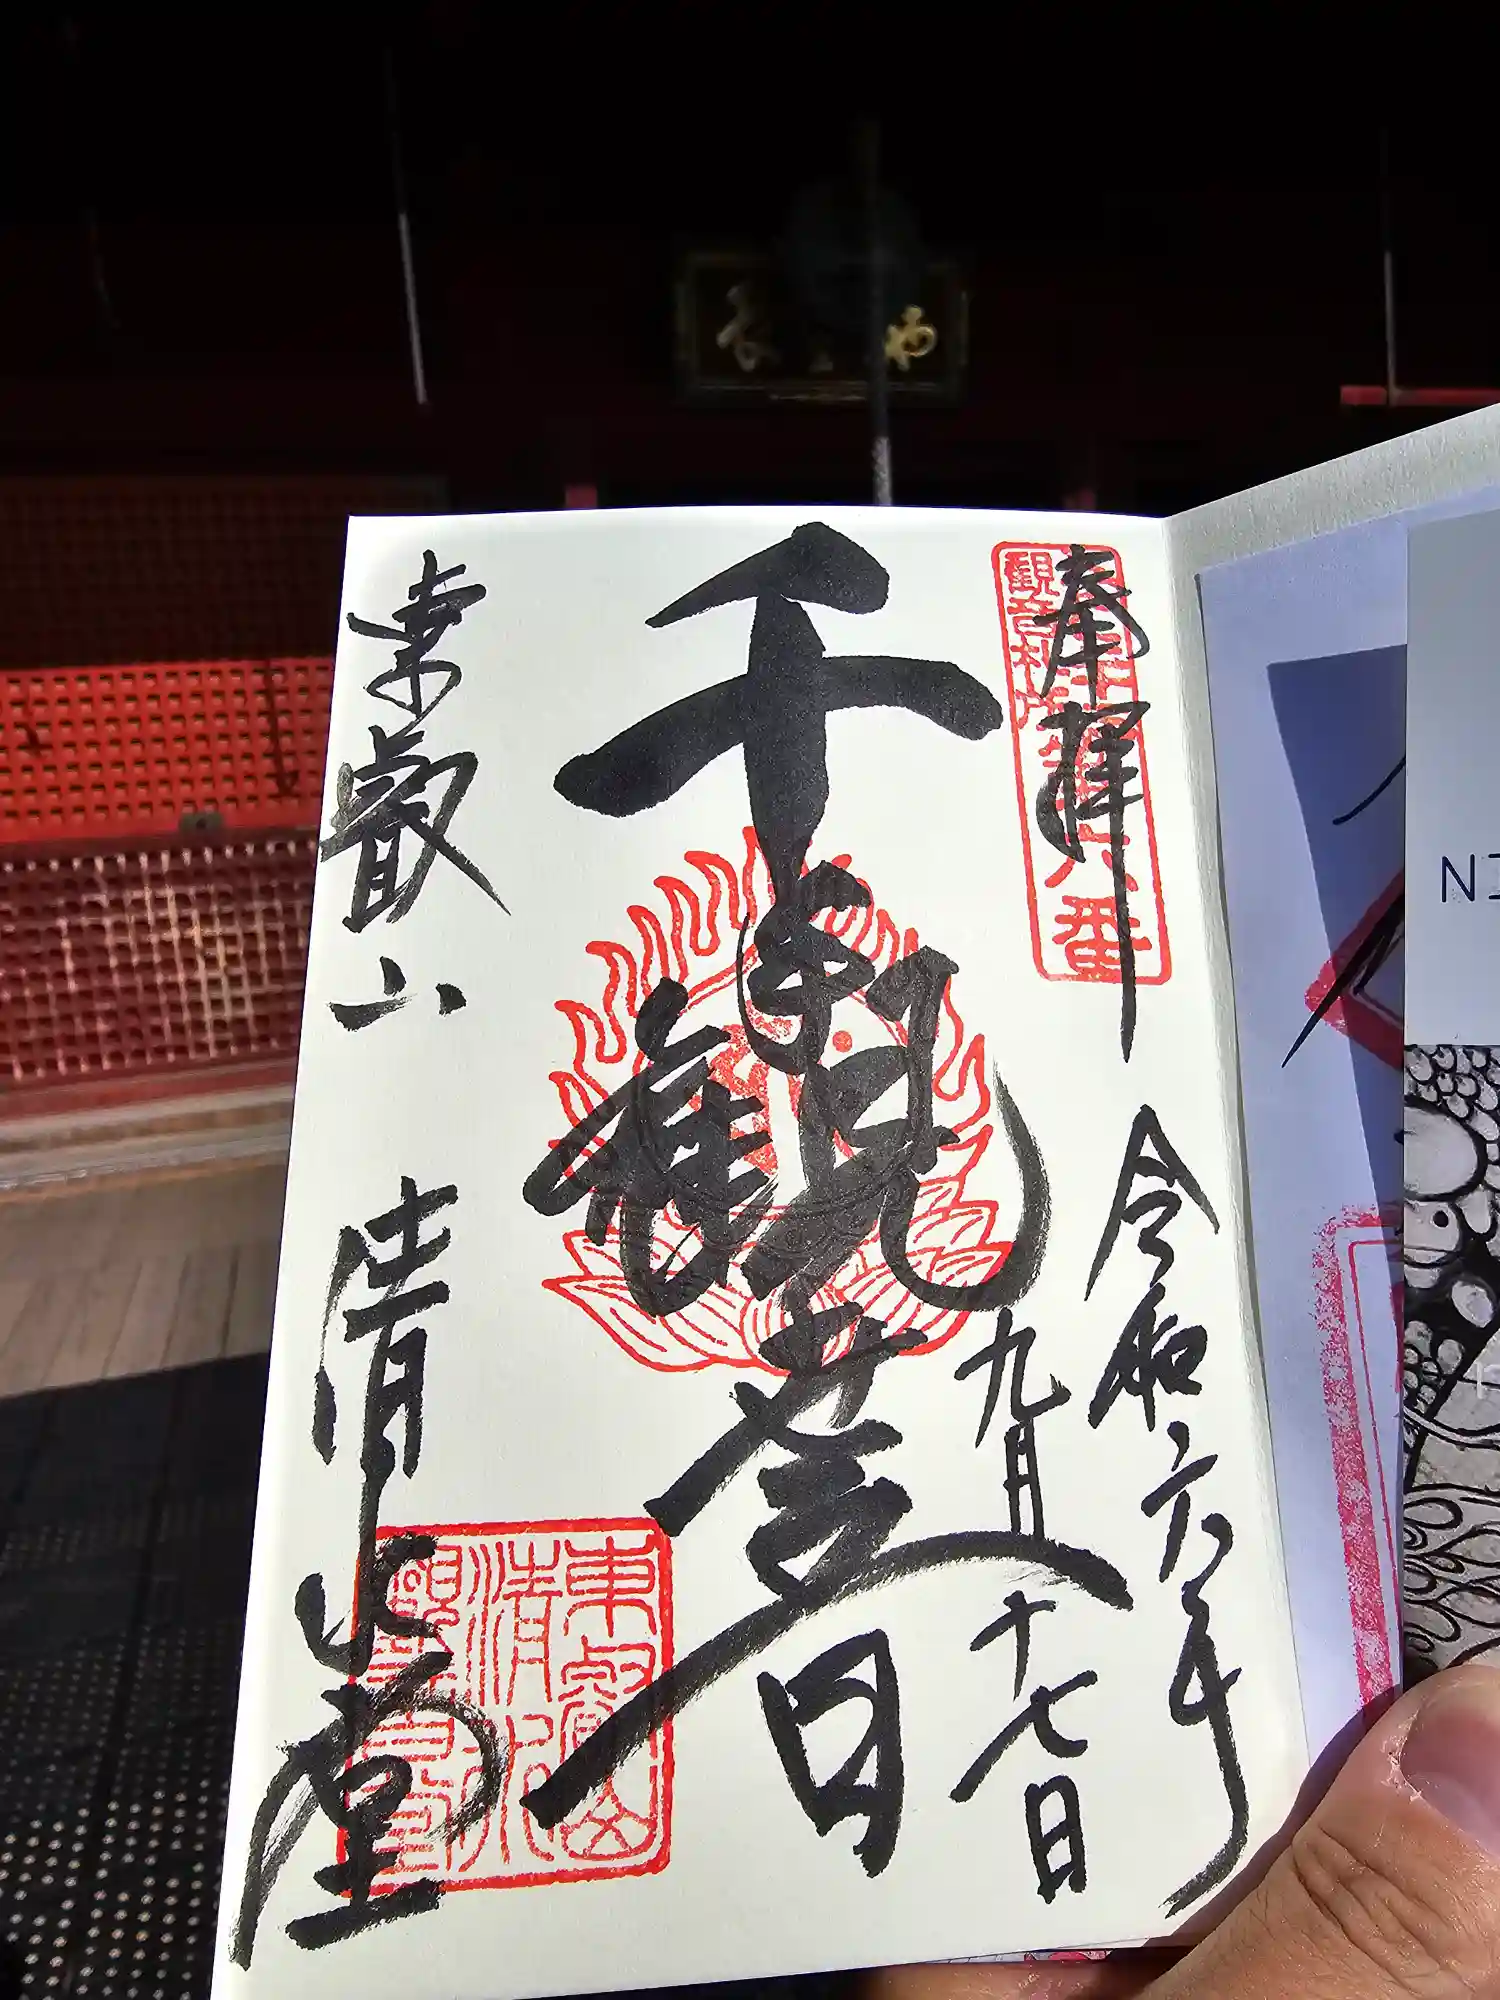 奉拝
令和六年
九月十七日
千手観世音
東叡山 清水堂
六番
観音札所
東叡山
清水
観音堂
NI